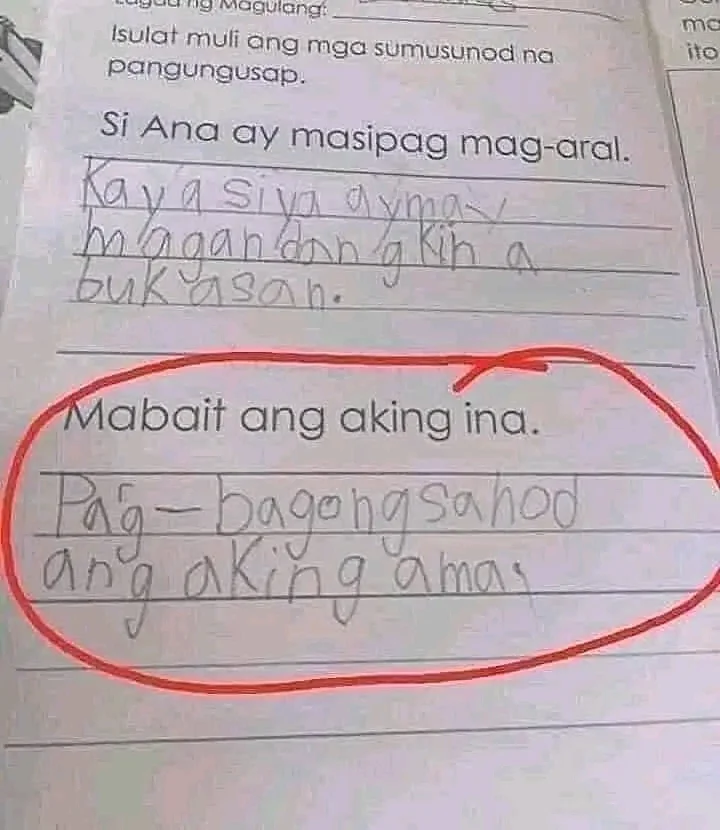 ng Magulang:
Isulat muli ang mga sumusunod na
pangungusap.
Si Ana ay masipag mag-aral.
Kaya siya ay may
magandang kin a
bukasan.
Mabait ang aking ina.
Pag-bagong sahod
ang aking ama,
ma
ito